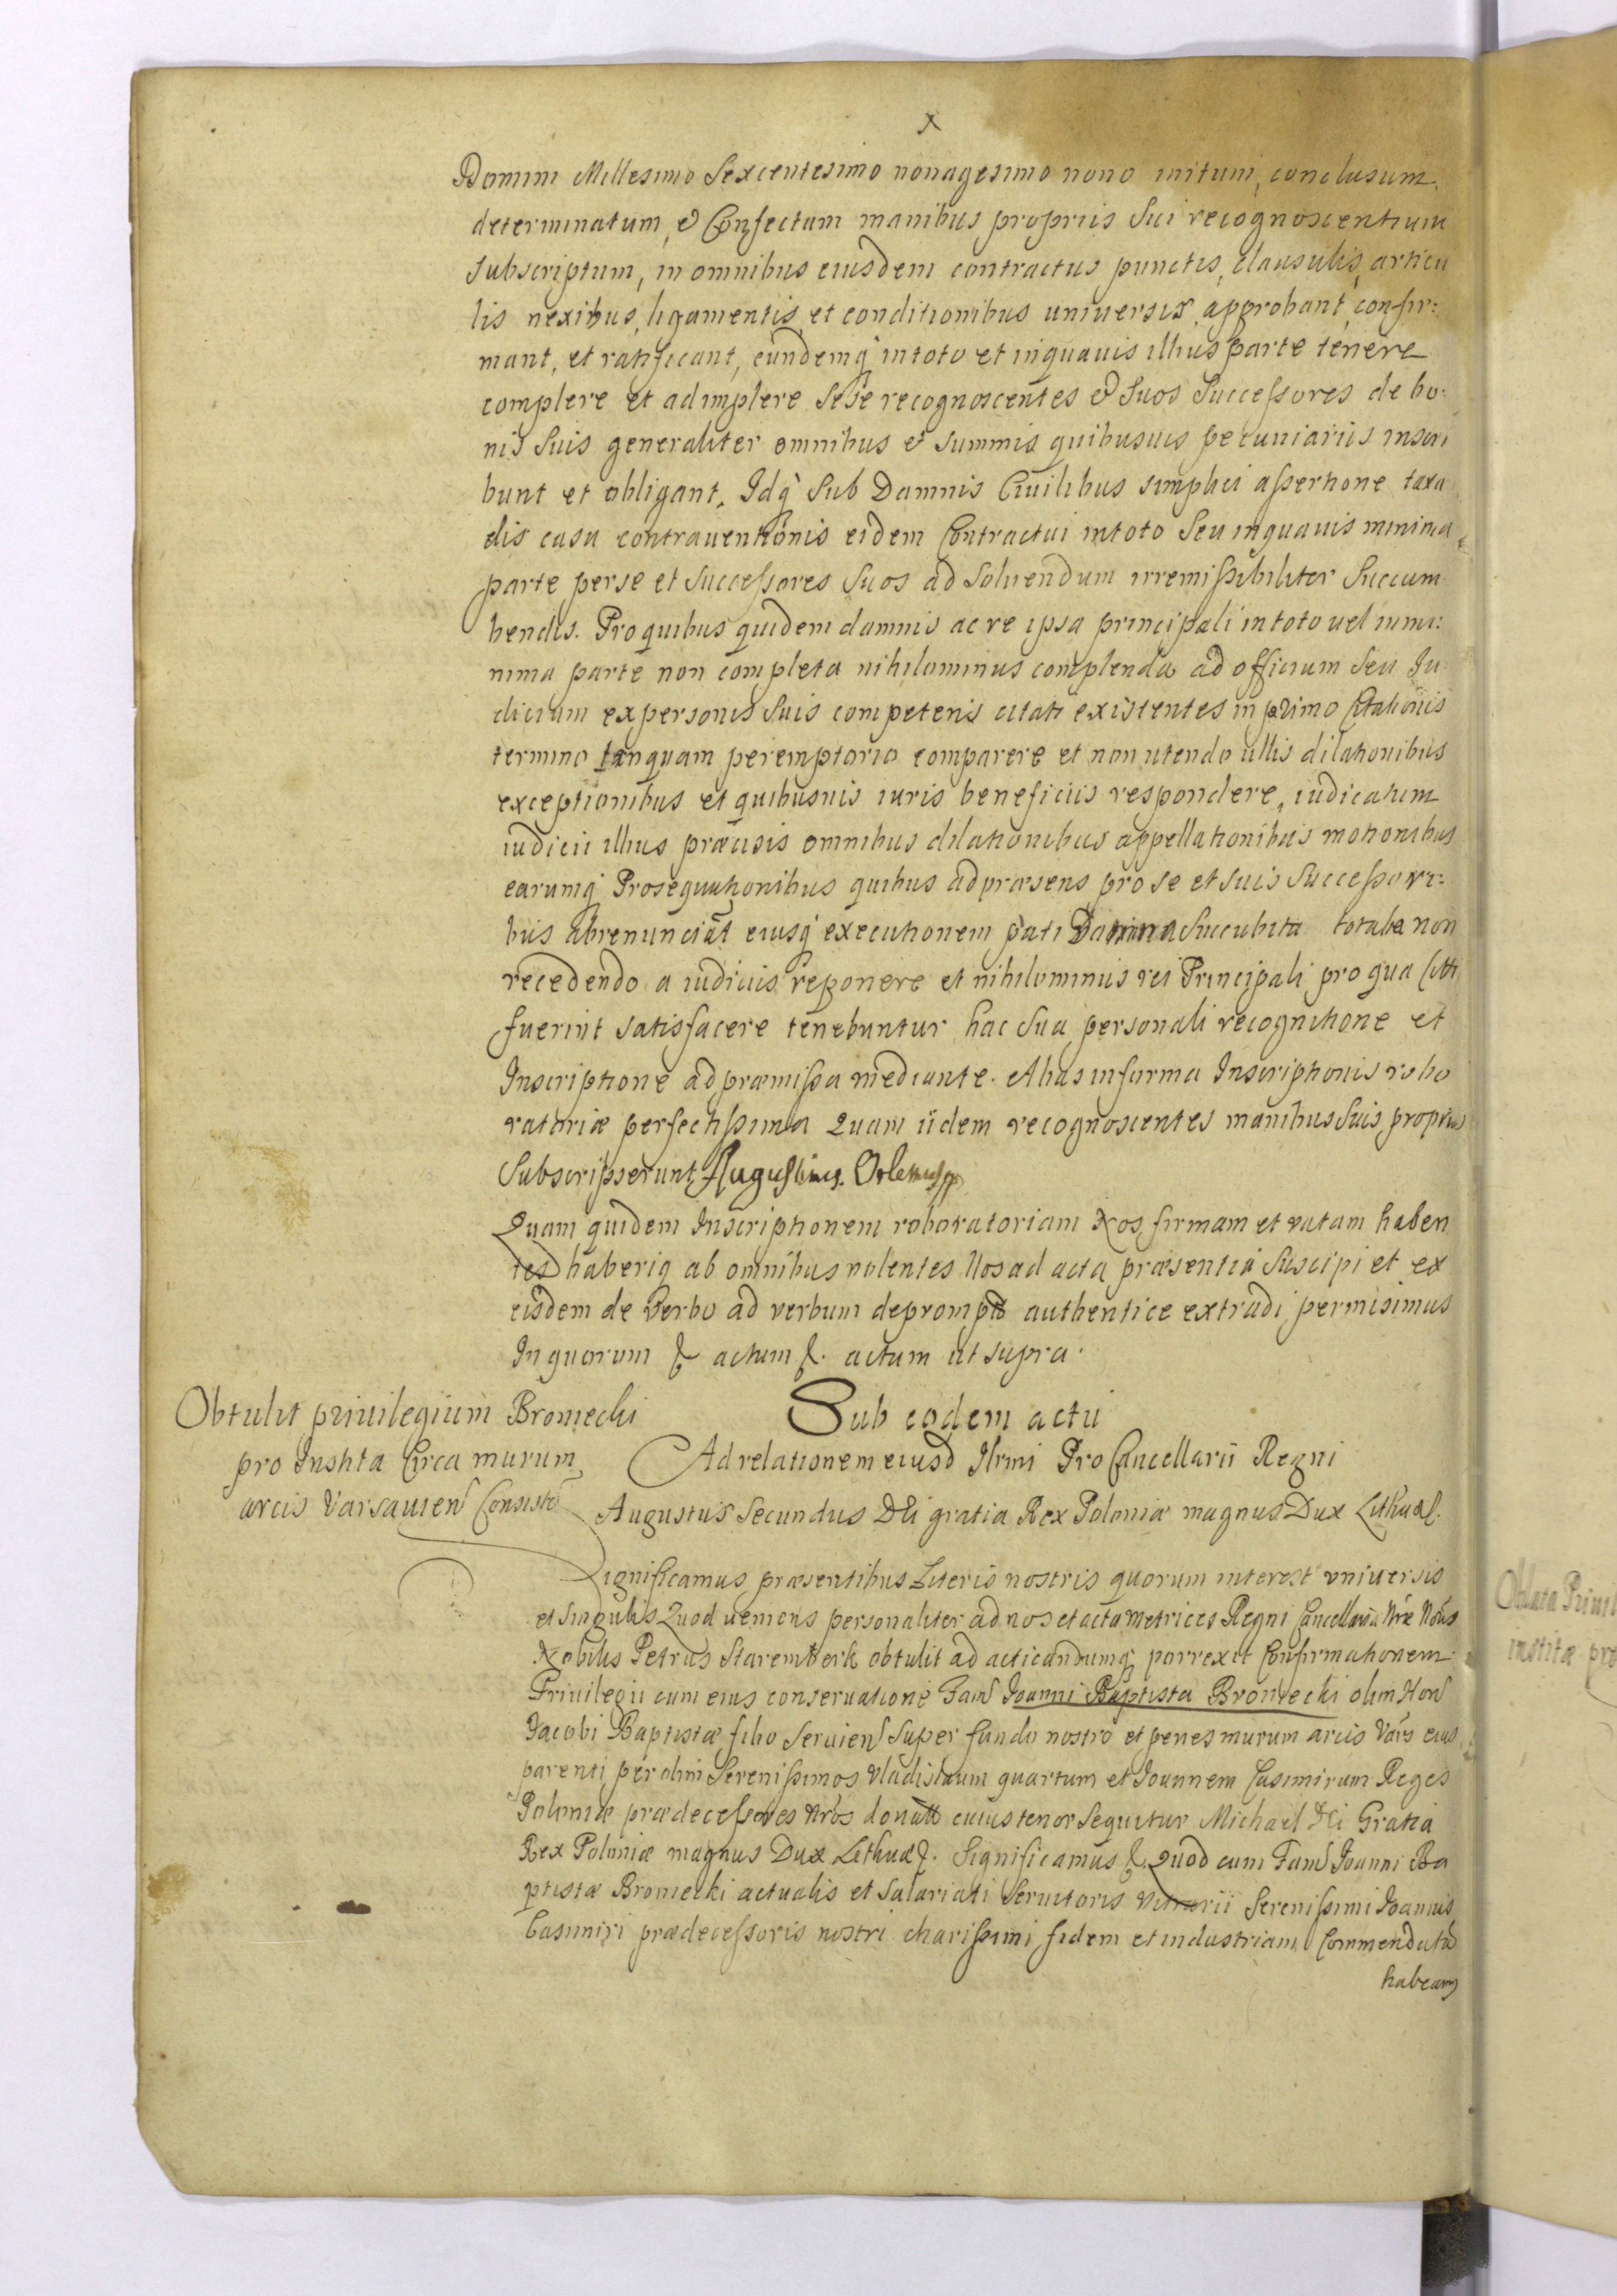 x
Domini Millesimo Sexcentesimo nonagesimo nono initum, conclusum,
determinatum, & Confectum manibus propriis Sui recognoscentium
subscriptum, in omnibus eiusdem contractus punctis, clausulis, articu
lis nexibus, ligamentis, et conditionibus universis, approbant, confir:
mant, et ratificant, eundemq in toto et in quavis illius parte tenere
complere et adimplere Sese recognoscentes & Suos Successores de bo:
nis Suis generaliter omnibus & summis quibusuis pecuniariis inscri
bunt et obligant. Idq Sub Damnis Ciuilibus simplici assertione taxa
dis casu contrauentionis eidem Contractui in toto Seu in quauis minima
parte per se et Successores Suos ad Soluendum irremissibiliter Succum
bendis. Pro quibus quidem damnis ac re ipsa principali in toto uel in mi:
nima parte non completa nihilominus complenda ad officium Seu Iu
dicium ex personis Suis competens citati existentes in primo Citationis
termino tanquam peremptorio comparere et non utendo ullis dilationibus
exceptionibus et quibusuis iuris beneficiis respondere, iudicatum
iudicii illius præcisis omnibus dilationibus appellationibus motionibus
earumq Prosequutionibus quibus ad præsens pro se et suis Successori:
bus abrenunciat eiusq executionem pati Damna Succubita non
recedendo a iudiciis reponere et nihilominus rei Principali pro qua Citti
fuerint satisfacere tenebuntur hac Sua personali recognitione et
Inscriptione ad præmissa mediante. Alias in forma Inscriptionis robo
ratoriæ perfectissima Quam iidem recognoscentes manibus Suis propriis
Subscripserunt Augustinus. Orlemus pp
Quam quidem Inscriptionem roboratoriam Nos firmam et ratam haben
tes haberiq ab omnibus volentes Nos ad acta præsentia Suscipi et ex
eisdem de Verbo ad verbum authentice extradi permisimus
In quorum &. actum &. actum ut supra.
Obtulit priuilegium Broniecki
pro Instita Circa murum
arcis Varsauien Consisten
Sub eodem actu
Ad relationem eiusd Ilrmi Pro Cancellarii Regni
Augustus Secundus DEi gratia Rex Poloniæ magnus Dux Lithuæ &.
Significamus præsentibus Literis nostris quorum interest vniuersis
et singulis Quod ueniens personaliter ad nos et acta metrices Regni Cancellaria Nræ Nous
Nobilis Petrus Starenberk obtulit ad acticandumq porrexit Confirmationem
Priuilegii cum eius conseruatione Fam Ioanni Baptista Broniecki olim Hon
Iacobi Baptistæ filio Seruien Super fundo nostro et penes murum arcis Vars eius
parenti per olim Serenissimos Vladislaum quartum et Ioannem Casimirum Reges
Poloniæ prædecessores Nros cuius tenor Sequitur Michael DEi Gratia
Rex Poloniæ magnus Dux Lithuæ &. Significamus &. Quod cum Fam Ioanni Ba
ptistæ Broniecki actualis et Salariati Seruitoris Vitrarii Serenissimi Ioannis
Casimiri prædecessoris nostri charissimi, fidem et industriam Commendatam
habeam
Oblata Priuil
institæ pro